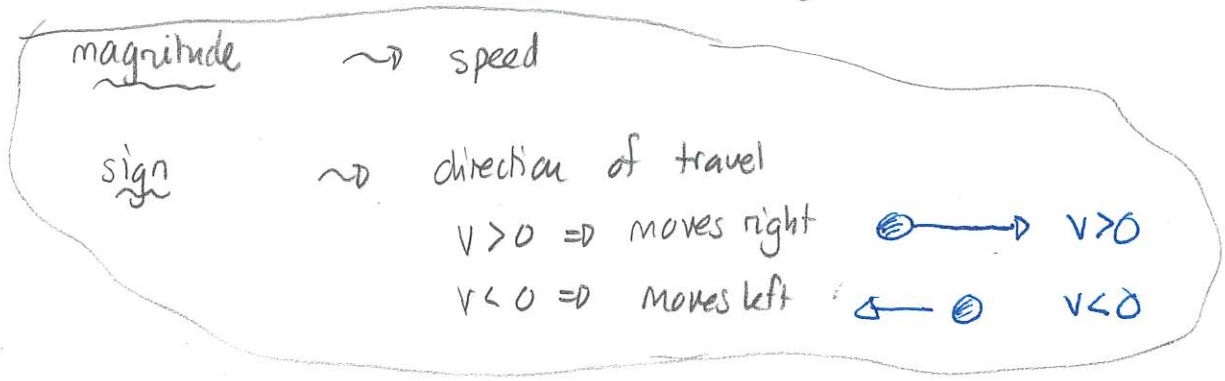 magnitude ⇝ speed
sign ⇝ direction of travel
v > 0 ⇒ moves right v>0
v < 0 ⇒ moves left v<0